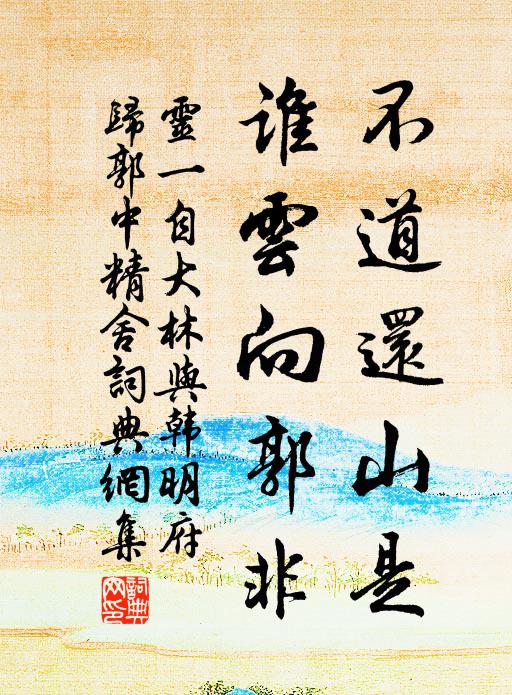 不道還山是
誰雲向郭非
靈一自大林與韓明府
歸郭中精舍詞典網集